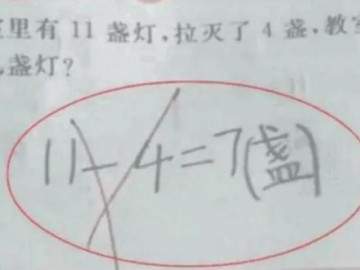 里有 11 盏灯，拉灭了 4 盏，教
盏灯？
11-4=7(盏)